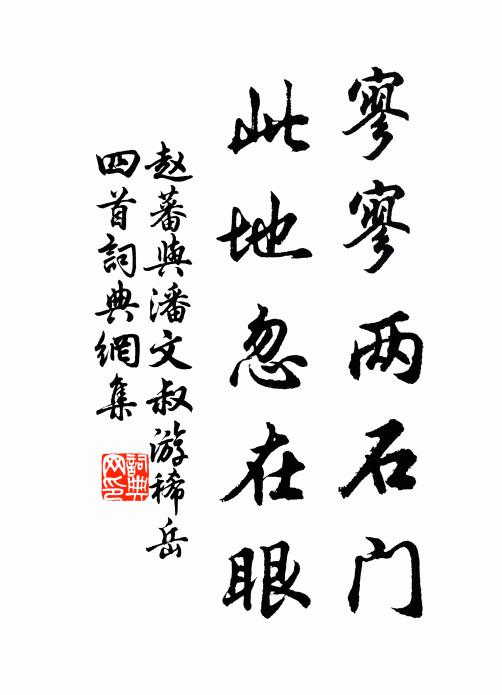 寥寥两石门
此地忽在眼
赵蕃與潘文叔游稀岳
四首詞典網集
詞典网印